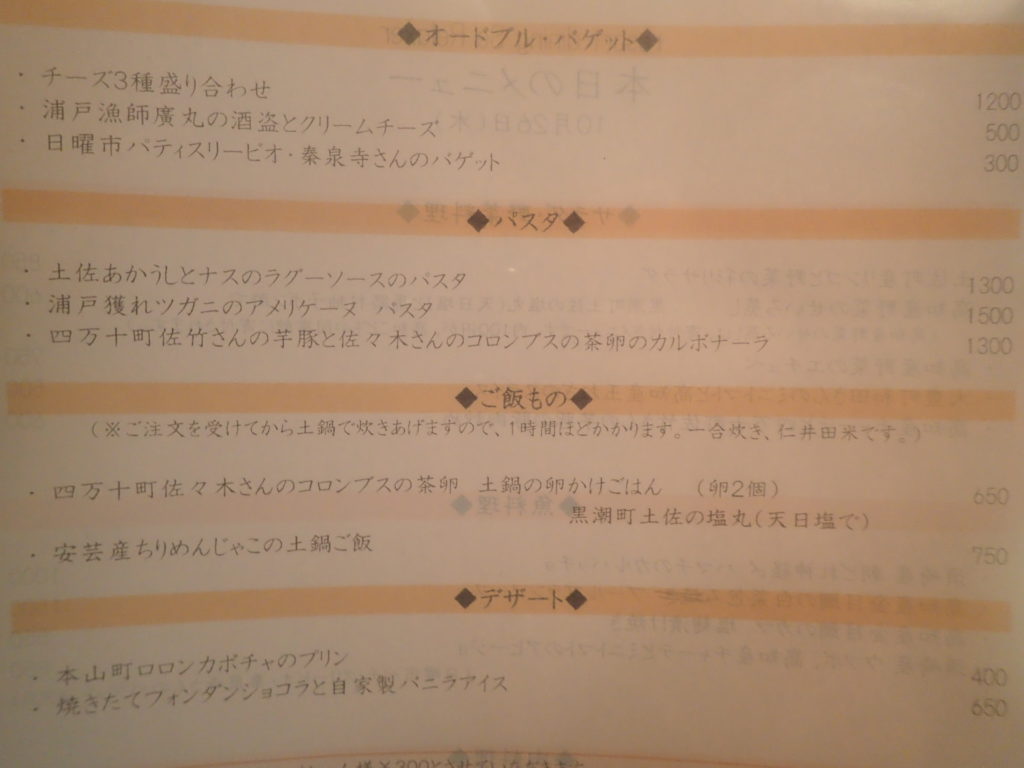 ◆オードブル・バゲット◆
・チーズ3種盛り合わせ 1200
・浦戸漁師廣丸の酒盗とクリームチーズ 500
・日曜市パティスリービオ・秦泉寺さんのバゲット 300
◆パスタ◆
・土佐あかうしとナスのラグーソースのパスタ 1300
・浦戸獲れツガニのアメリケーヌ パスタ 1500
・四万十町佐竹さんの芋豚と佐々木さんのコロンブスの茶卵のカルボナーラ 1300
◆ご飯もの◆
(※ご注文を受けてから土鍋で炊きあげますので、1時間ほどかかります。一合炊き、仁井田米です。)
・四万十町佐々木さんのコロンブスの茶卵 土鍋の卵かけごはん (卵2個) 650
黒潮町土佐の塩丸(天日塩で)
・安芸産ちりめんじゃこの土鍋ご飯 750
◆デザート◆
・本山町ロロンカボチャのプリン 400
・焼きたてフォンダンショコラと自家製バニラアイス 650